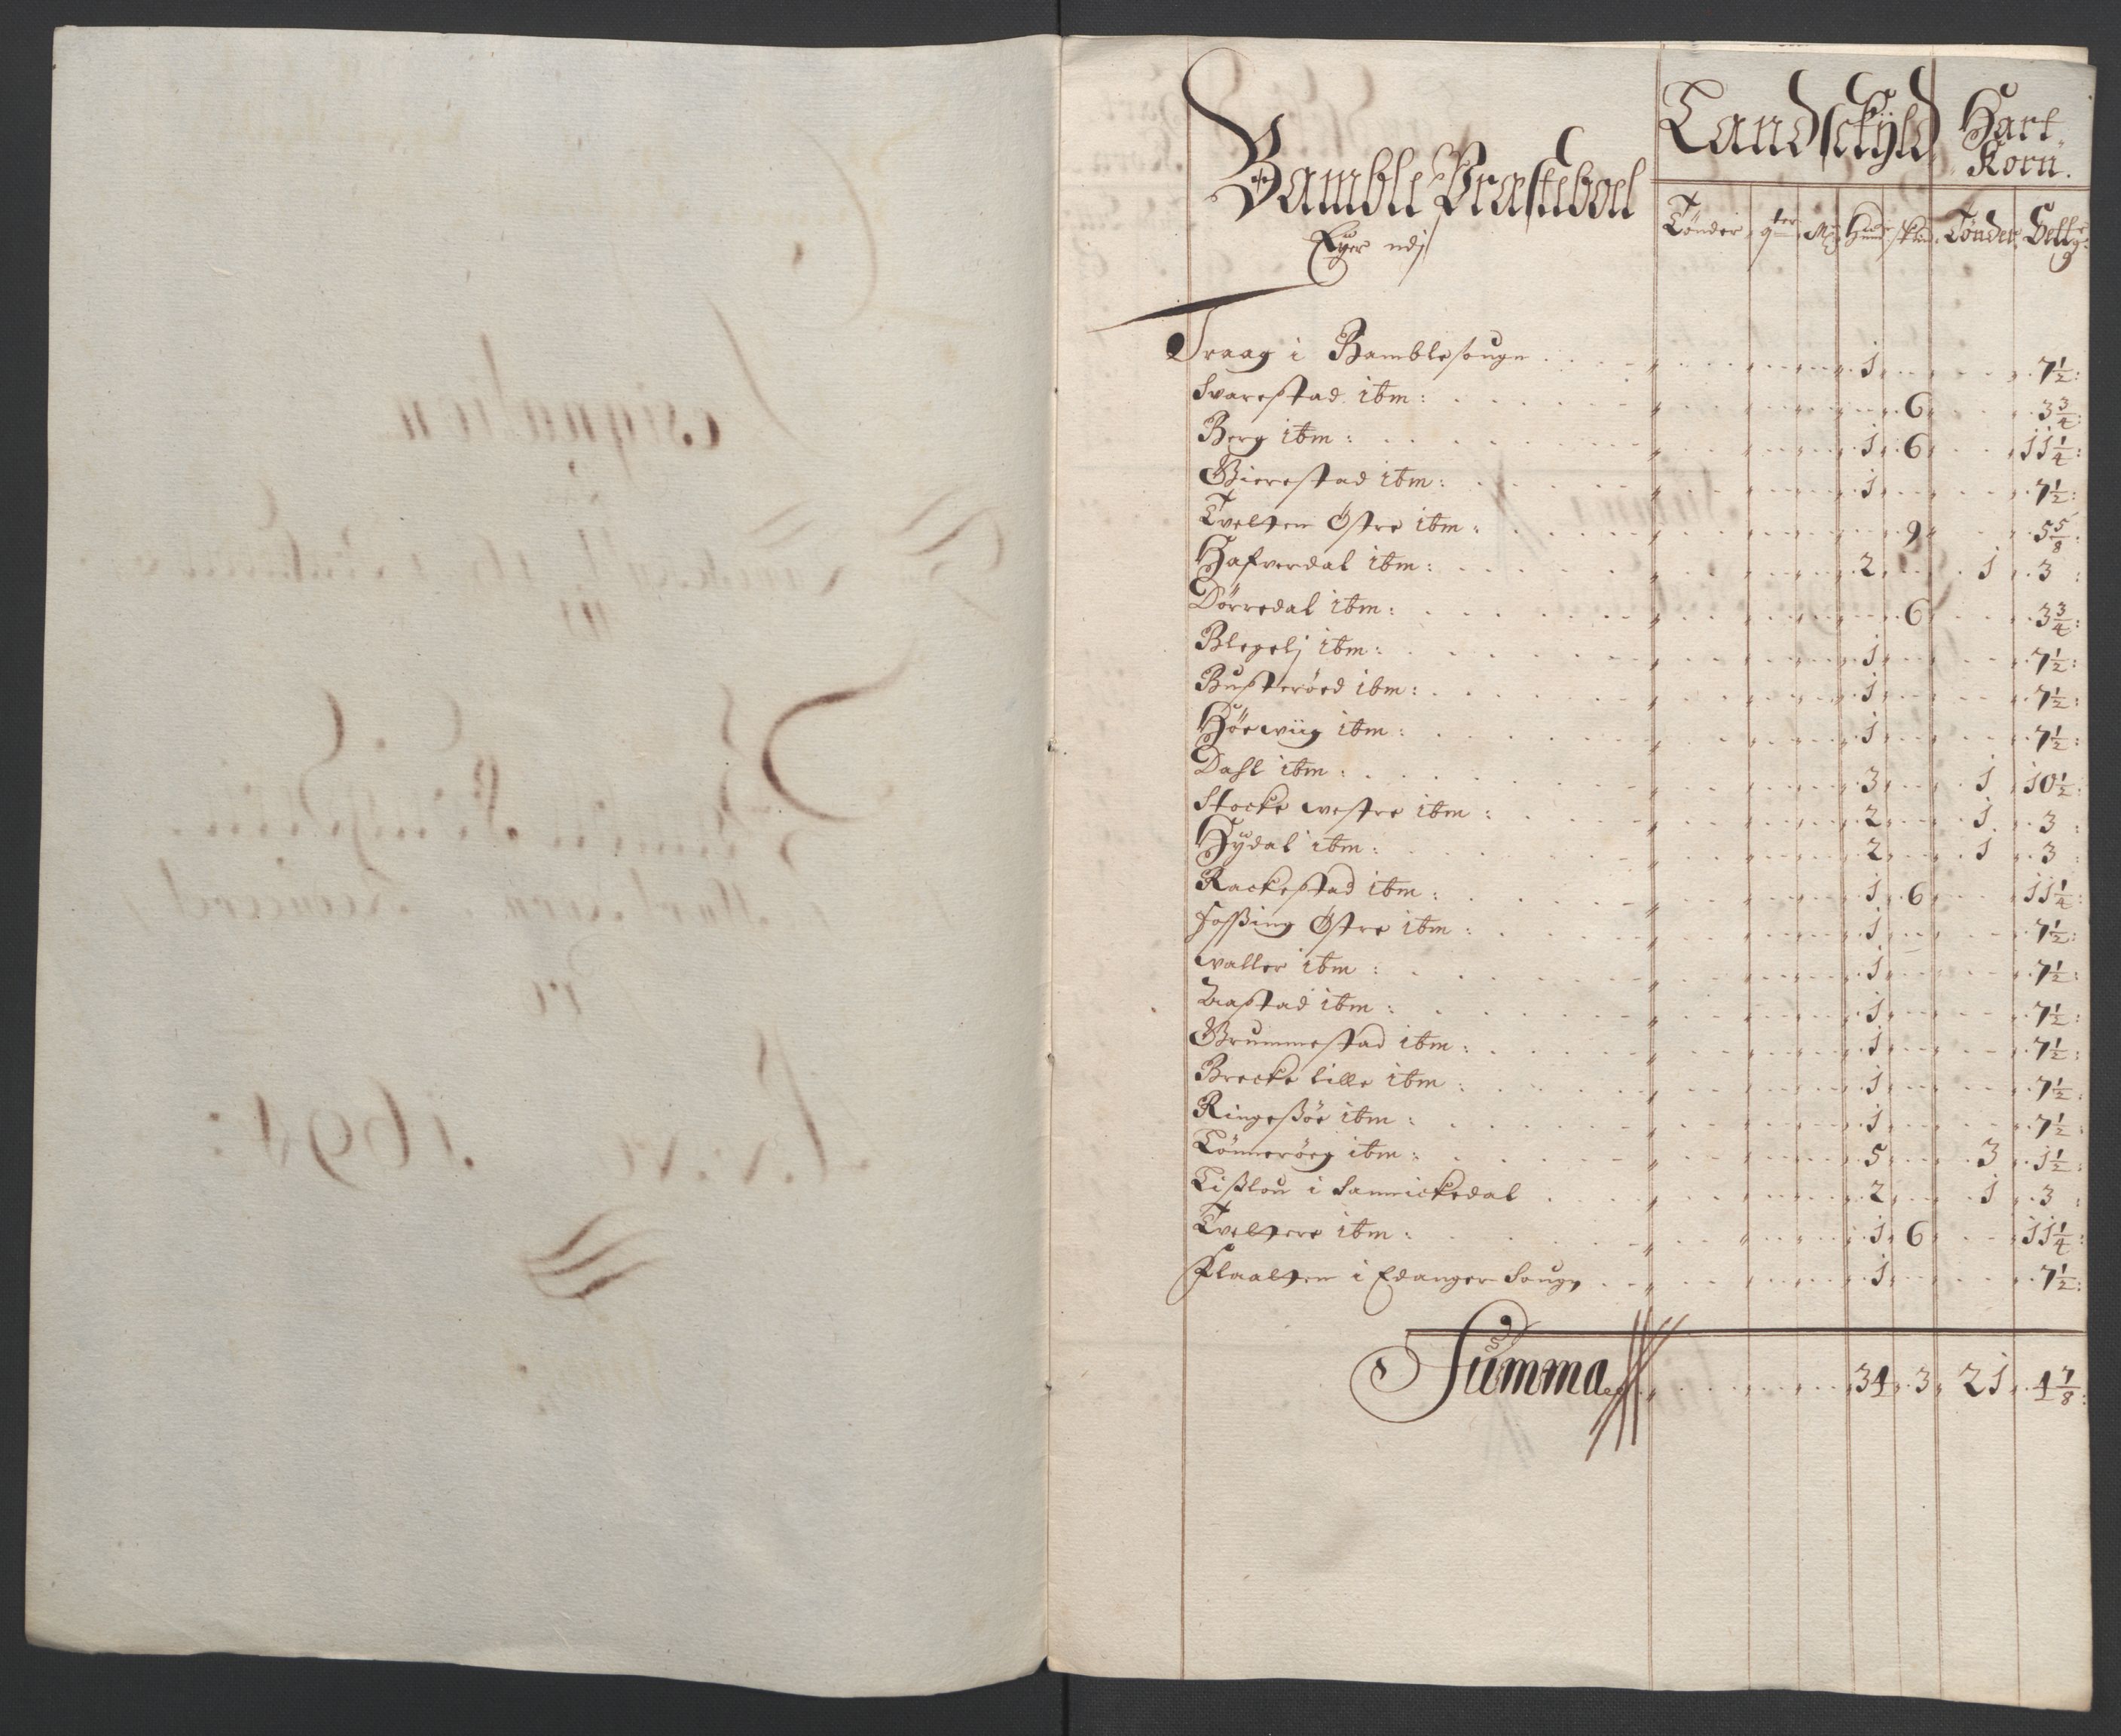 Bamble Præsteboel
Eyer udj
Landschÿld
Hart Korn.
Tønder qter Mk Hud skin Tønder Settg:
Traag i Bamblesougn 1 7½:
Svarestad ibm: 6 3¾:
Berg ibm: 1 6 11¼:
Bierestad ibm: 1 7½:
Tvelten Østre ibm: 9 5⅝:
Hafverdal ibm: 2 1 3:
Dörredal ibm: 6 3¾:
Blegelj ibm: 1 7½:
Busteröed ibm: 1 7½:
Höewiig ibm: 1 7½:
Dahl ibm: 3 1 10½:
Stocke westre ibm: 2 1 3:
Hÿdal ibm: 2 1 3:
Rackestad ibm: 1 6 11¼:
Fossing Østre ibm: 1 7½:
waller ibm: 1 7½:
Laastad ibm: 1 7½:
Grummestad ibm: 1 7½:
Brecke lille ibm: 1 7½:
Ringessöe ibm: 1 7½:
Tönneröeg ibm: 5 3 1½:
Tisslou i Sannickedal 2 1 3:
Tveltere ibm: 1 6 11¼:
Plaalten i Edanger Sougn 1 7½:
Summa 34 3 21 4⅞: